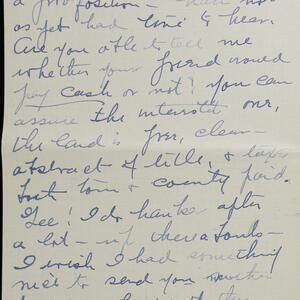 a proposition – have not
as yet had time to hear.
Are you able to tell me
whether your friend would
pay cash or not? You can
assure the interested one,
the land is free, clear –
abstract of title, & taxes
both town & county paid.
Gee! I do hanker after
a lot – up thereabouts –
I wish I had something
nice to send you